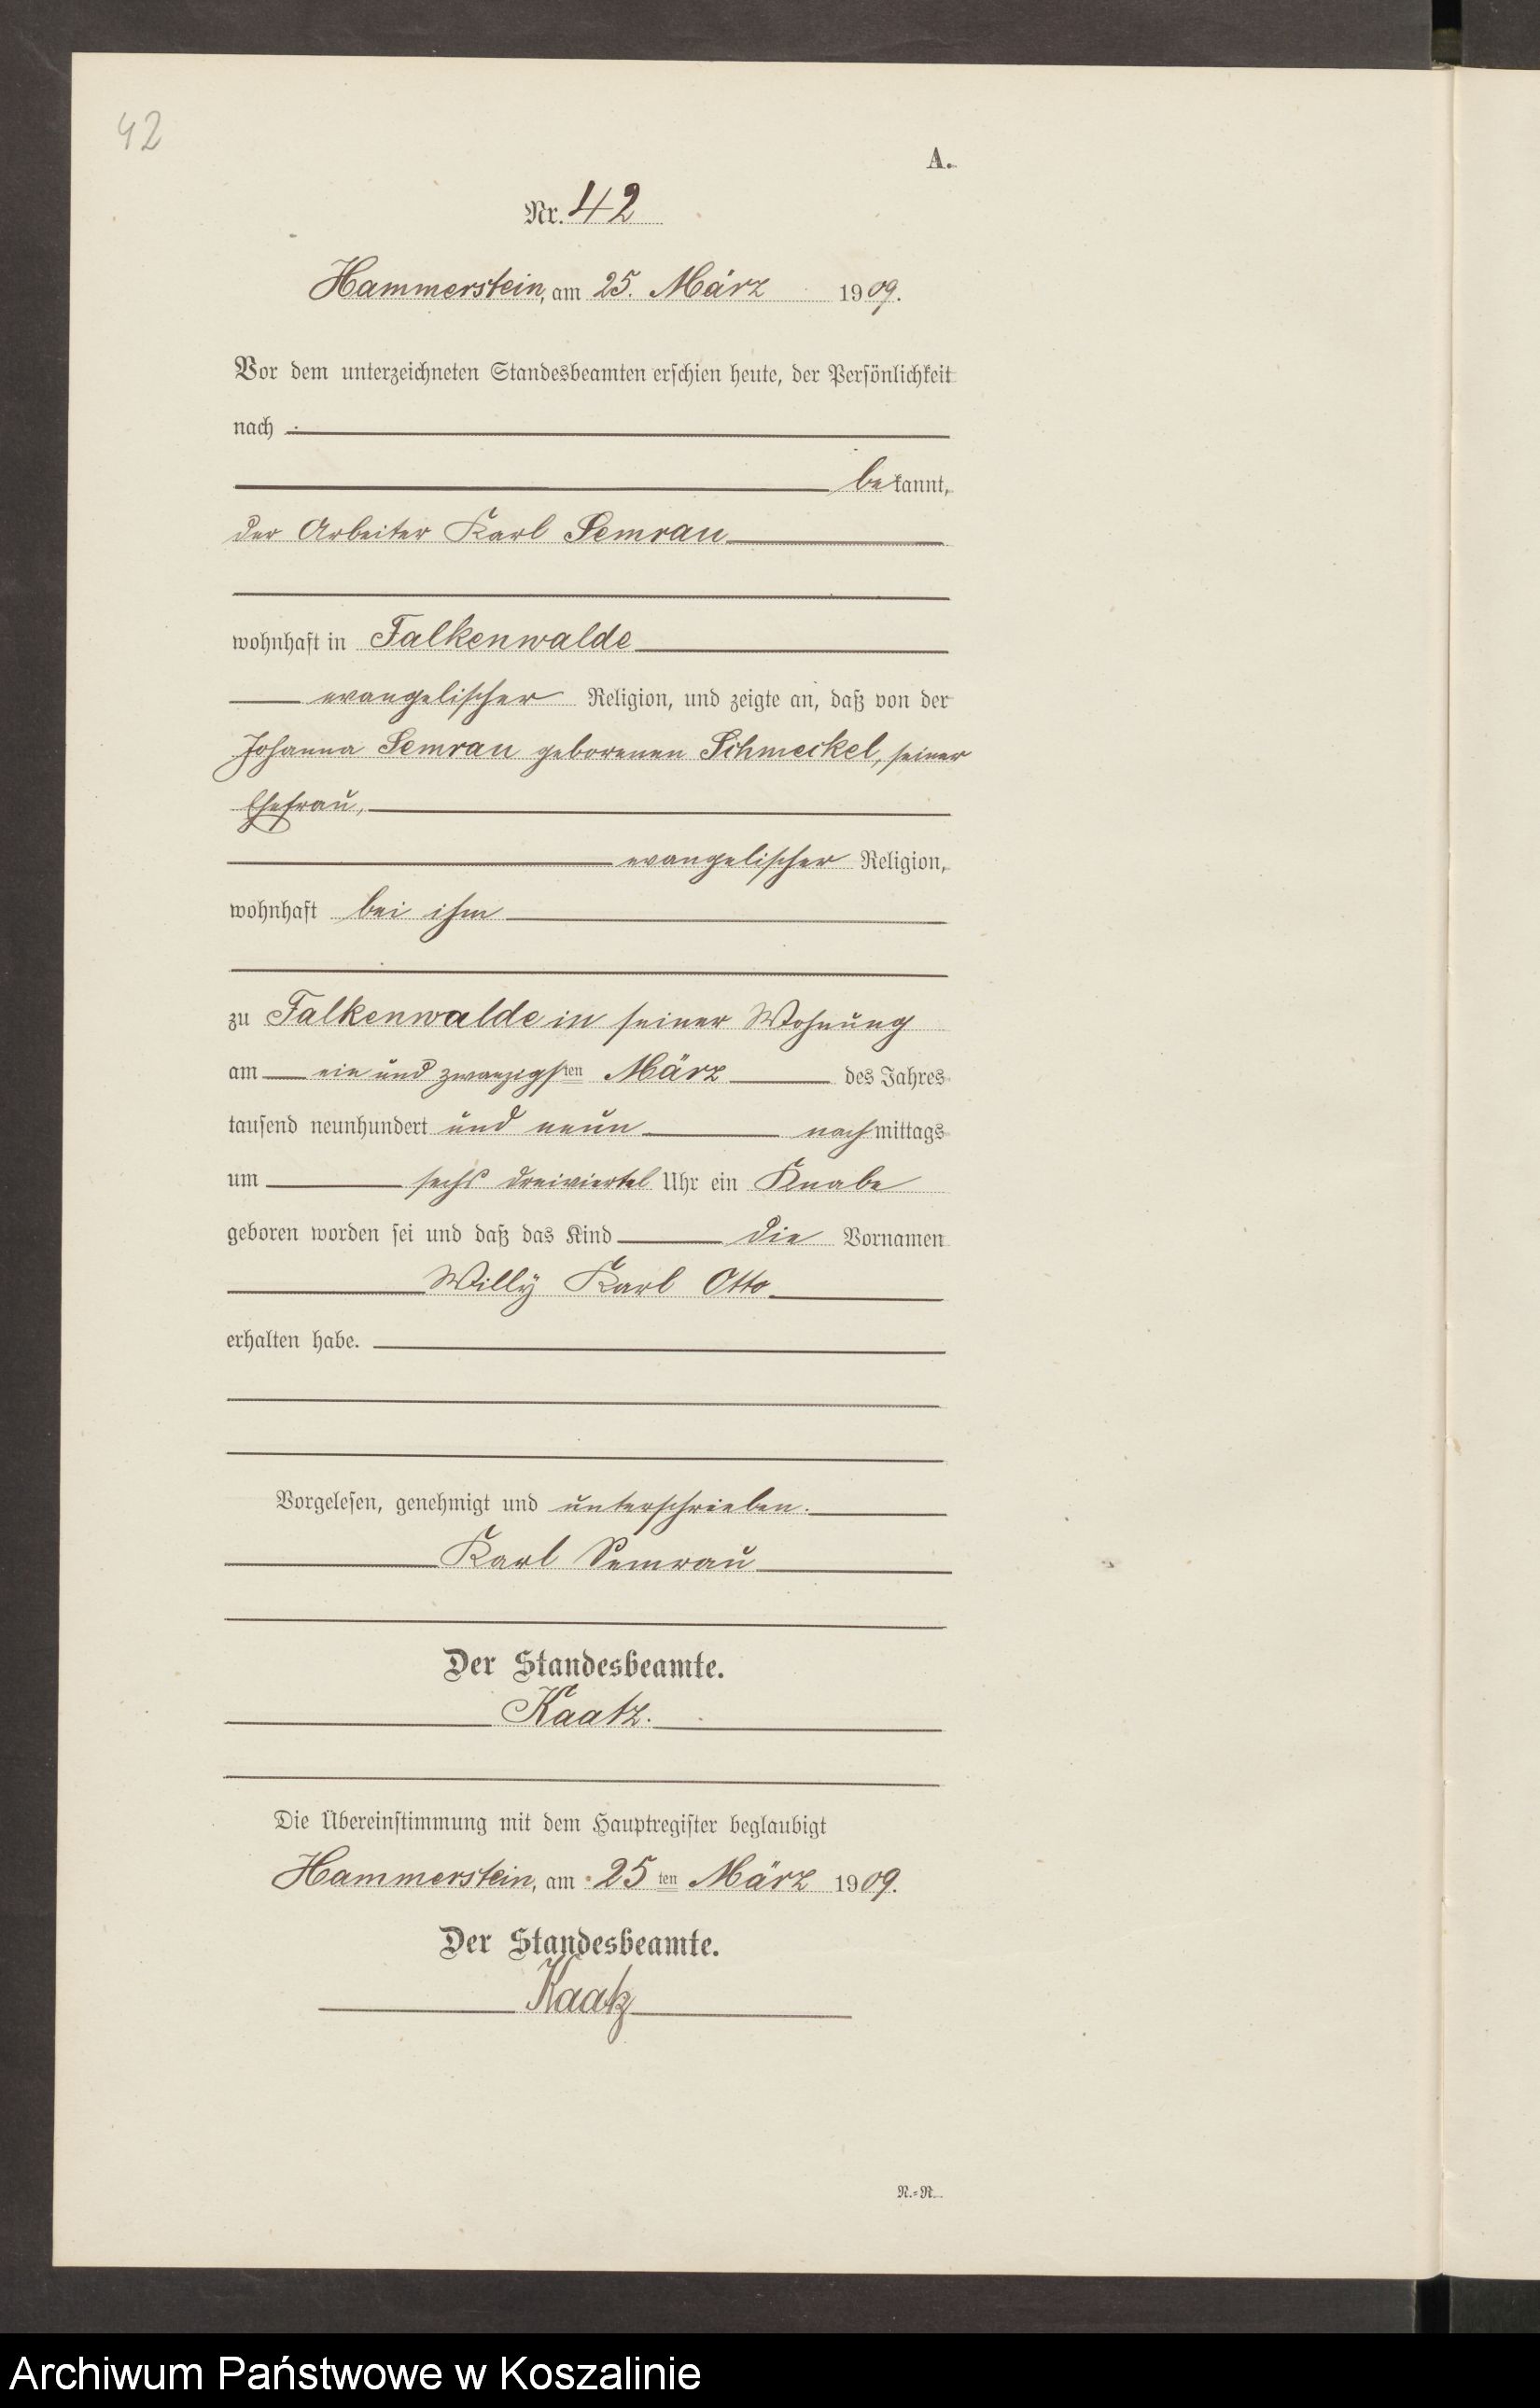 42
A.
Nr. 42
Hammerstein, am 25. März 1909.
Vor dem unterzeichneten Standesbeamten erschien heute, der Persönlichkeit
nach
bekannt,
der Arbeiter Karl Semrau
wohnhaft in Falkenwalde
evangelischer Religion, und zeigte an, daß von der
Johanna Semrau geborenen Schmeckel, seiner
Ehefrau,
evangelischer Religion,
wohnhaft bei ihm
zu Falkenwalde in seiner Wohnung
am ein und zwanzigsten März des Jahres
tausend neunhundert und neun nachmittags
um sechs dreiviertel Uhr ein Knabe
geboren worden sei und daß das Kind die Vornamen
Willy Karl Otto
erhalten habe.
Vorgelesen, genehmigt und unterschrieben.
Karl Semrau
Der Standesbeamte.
Kaatz.
Die Übereinstimmung mit dem Hauptregister beglaubigt
Hammerstein, am 25ten März 1909.
Der Standesbeamte.
Kaatz
N.=R.
Archiwum Państwowe w Koszalinie